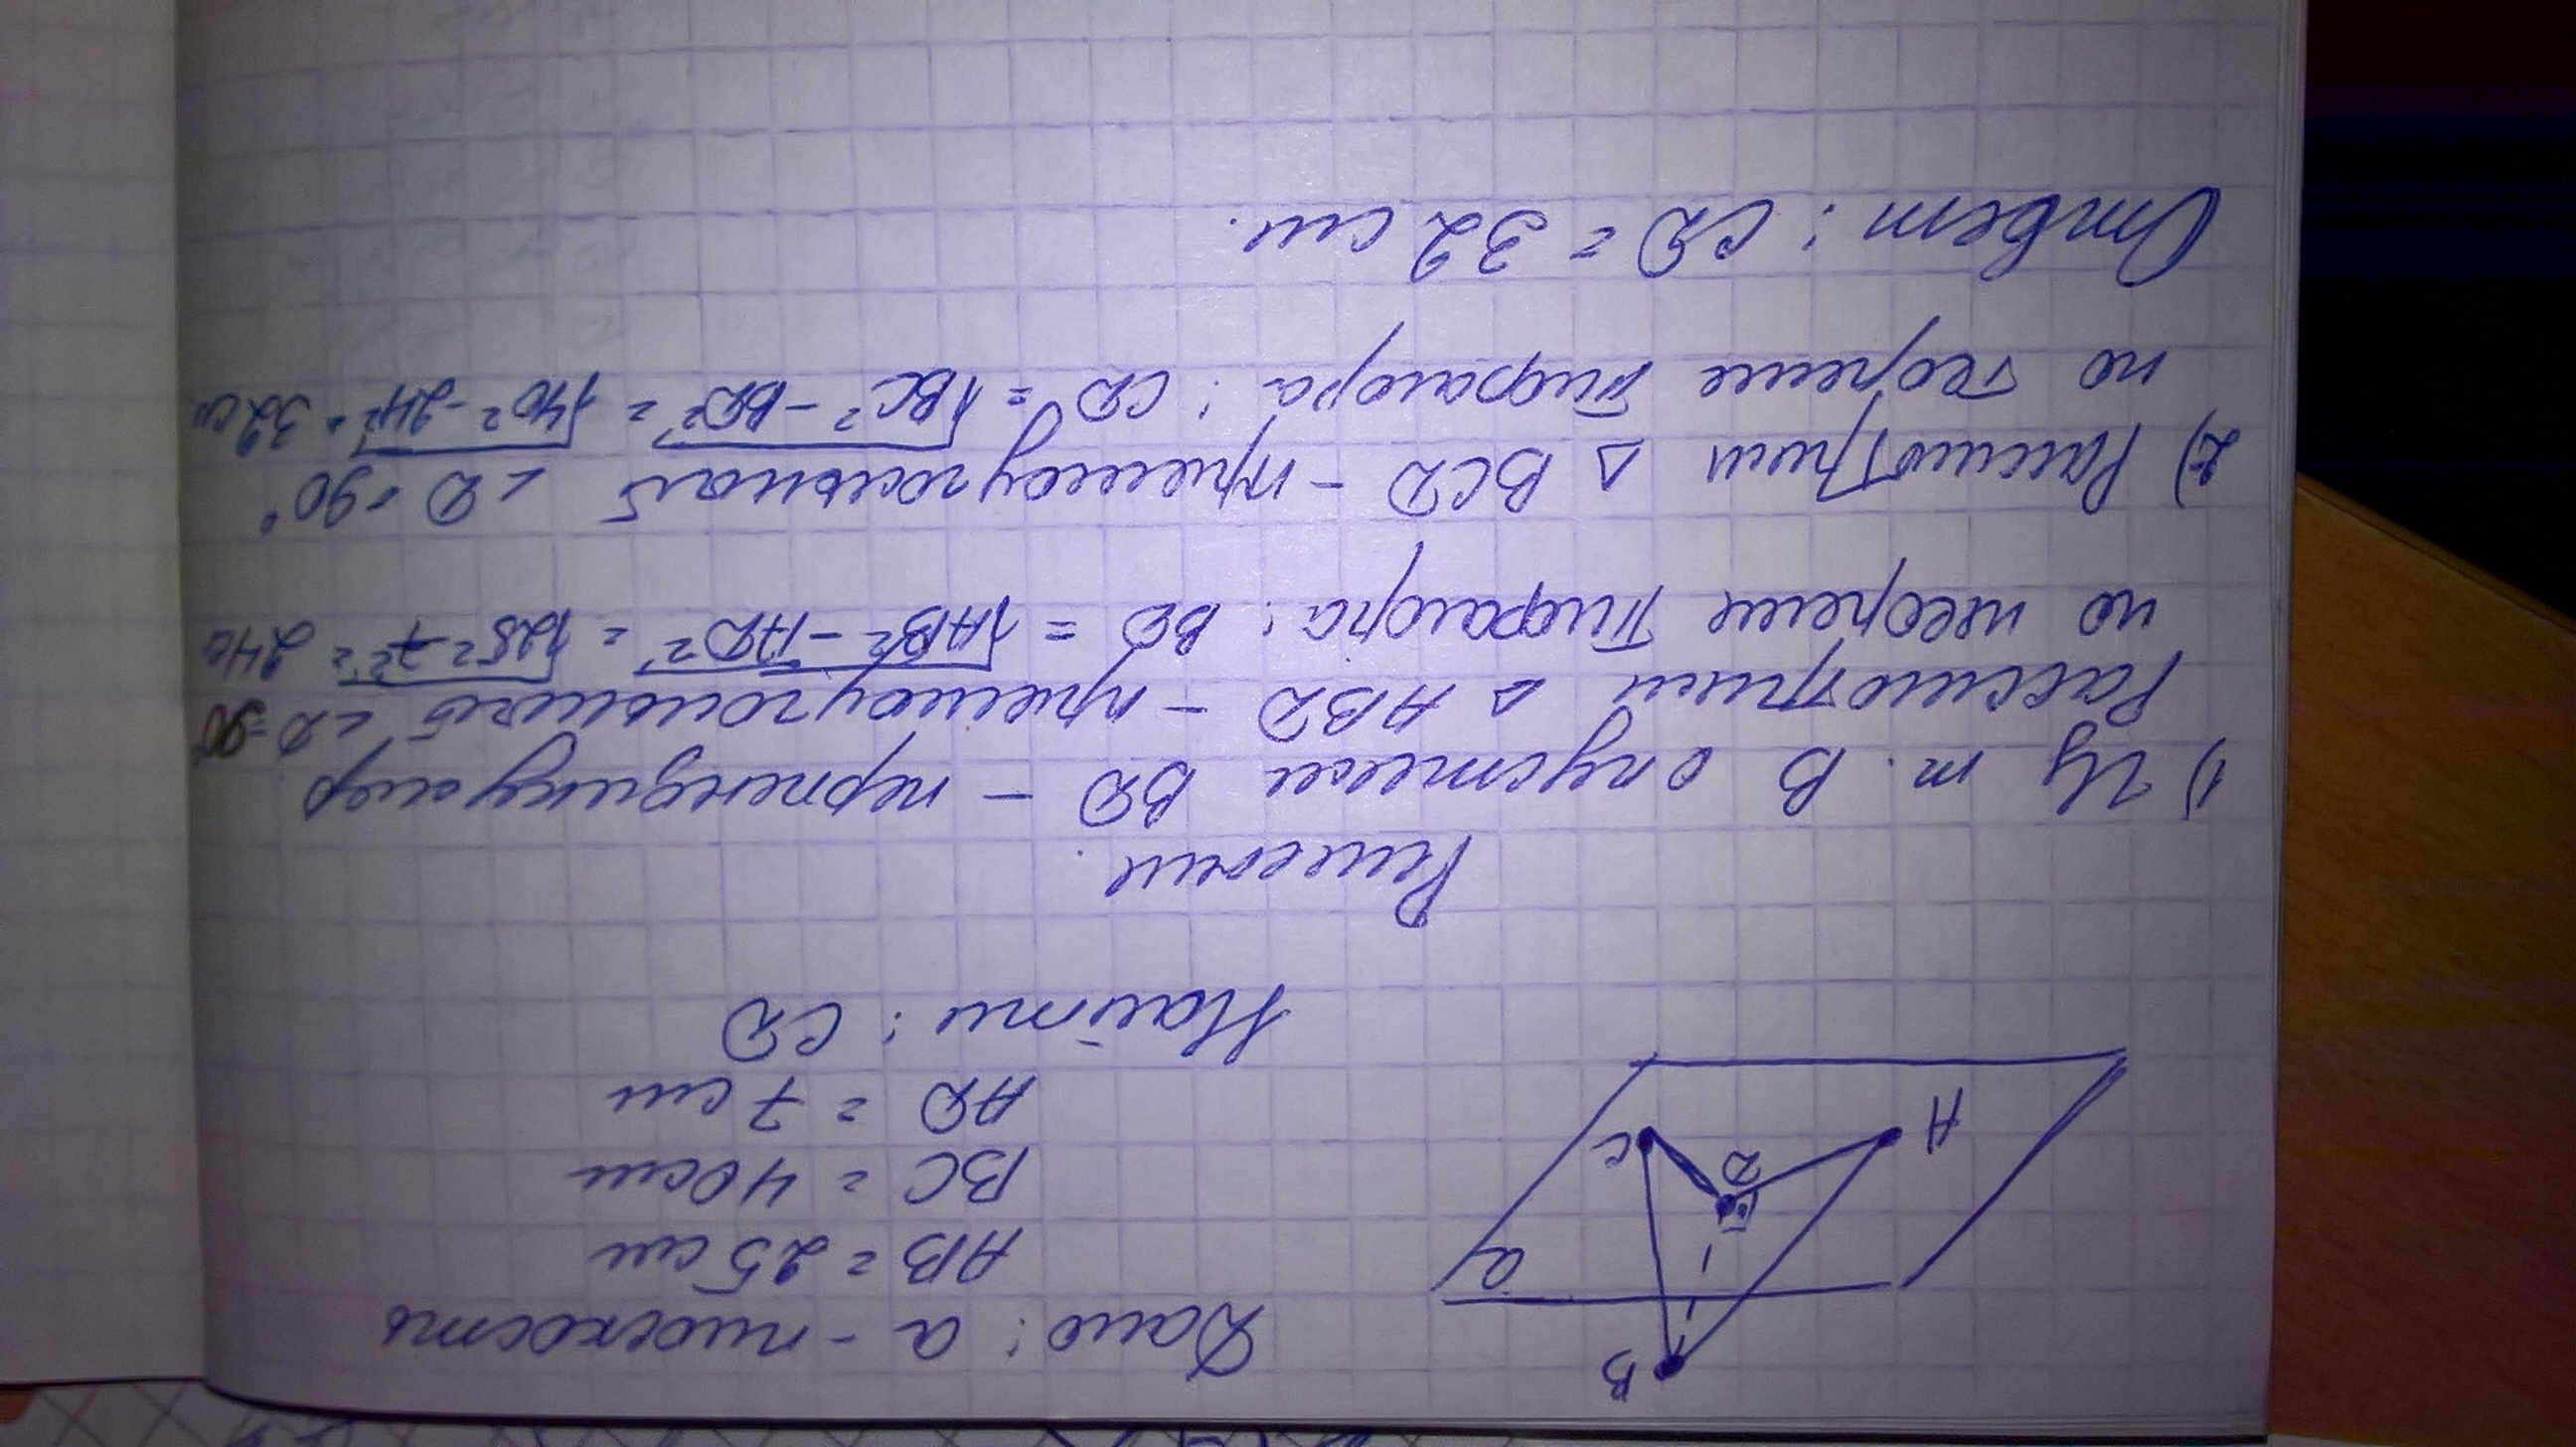 B
Дано: a - плоскость
a
AB = 25 см
D
BC = 40 см
C
A
AD = 7 см
Найти: CD
Решение.
1) Из т. B опустим BD - перпендикуляр
Рассмотрим △ ABD - прямоугольный ∠D=90°
по теореме Пифагора: BD = √AB² - AD² = √25² - 7² = 24 с
2) Рассмотрим △ BCD - прямоугольный ∠D = 90°
по теореме Пифагора: CD = √BC² - BD² = √40² - 24² = 32 см
Ответ: CD = 32 см.